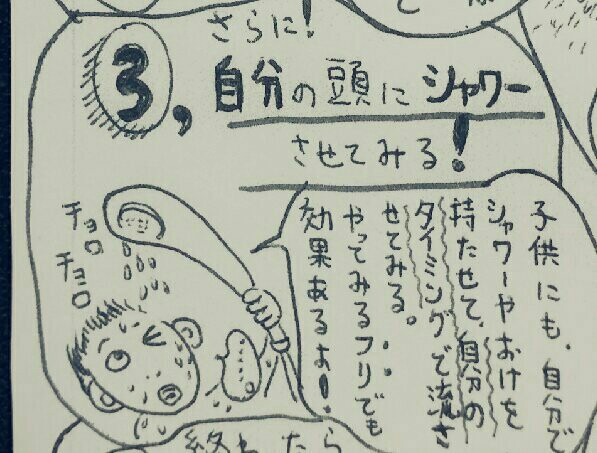 さらに!
3, 自分の頭にシャワー
させてみる!
子供にも、自分で
シャワーやおけを
持たせて、自分の
タイミングで流さ
せてみる。
やってみるフリでも
効果あるよ!
チョロ
チョロ
終わったら